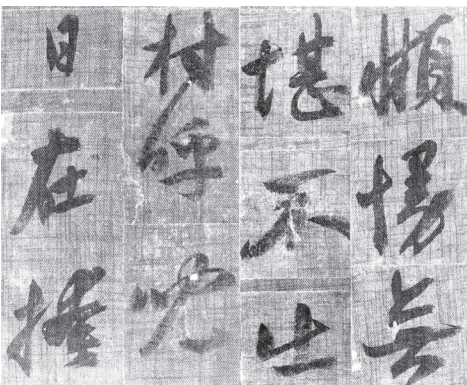 懶慢無
堪不出
村呼兒
日在掩